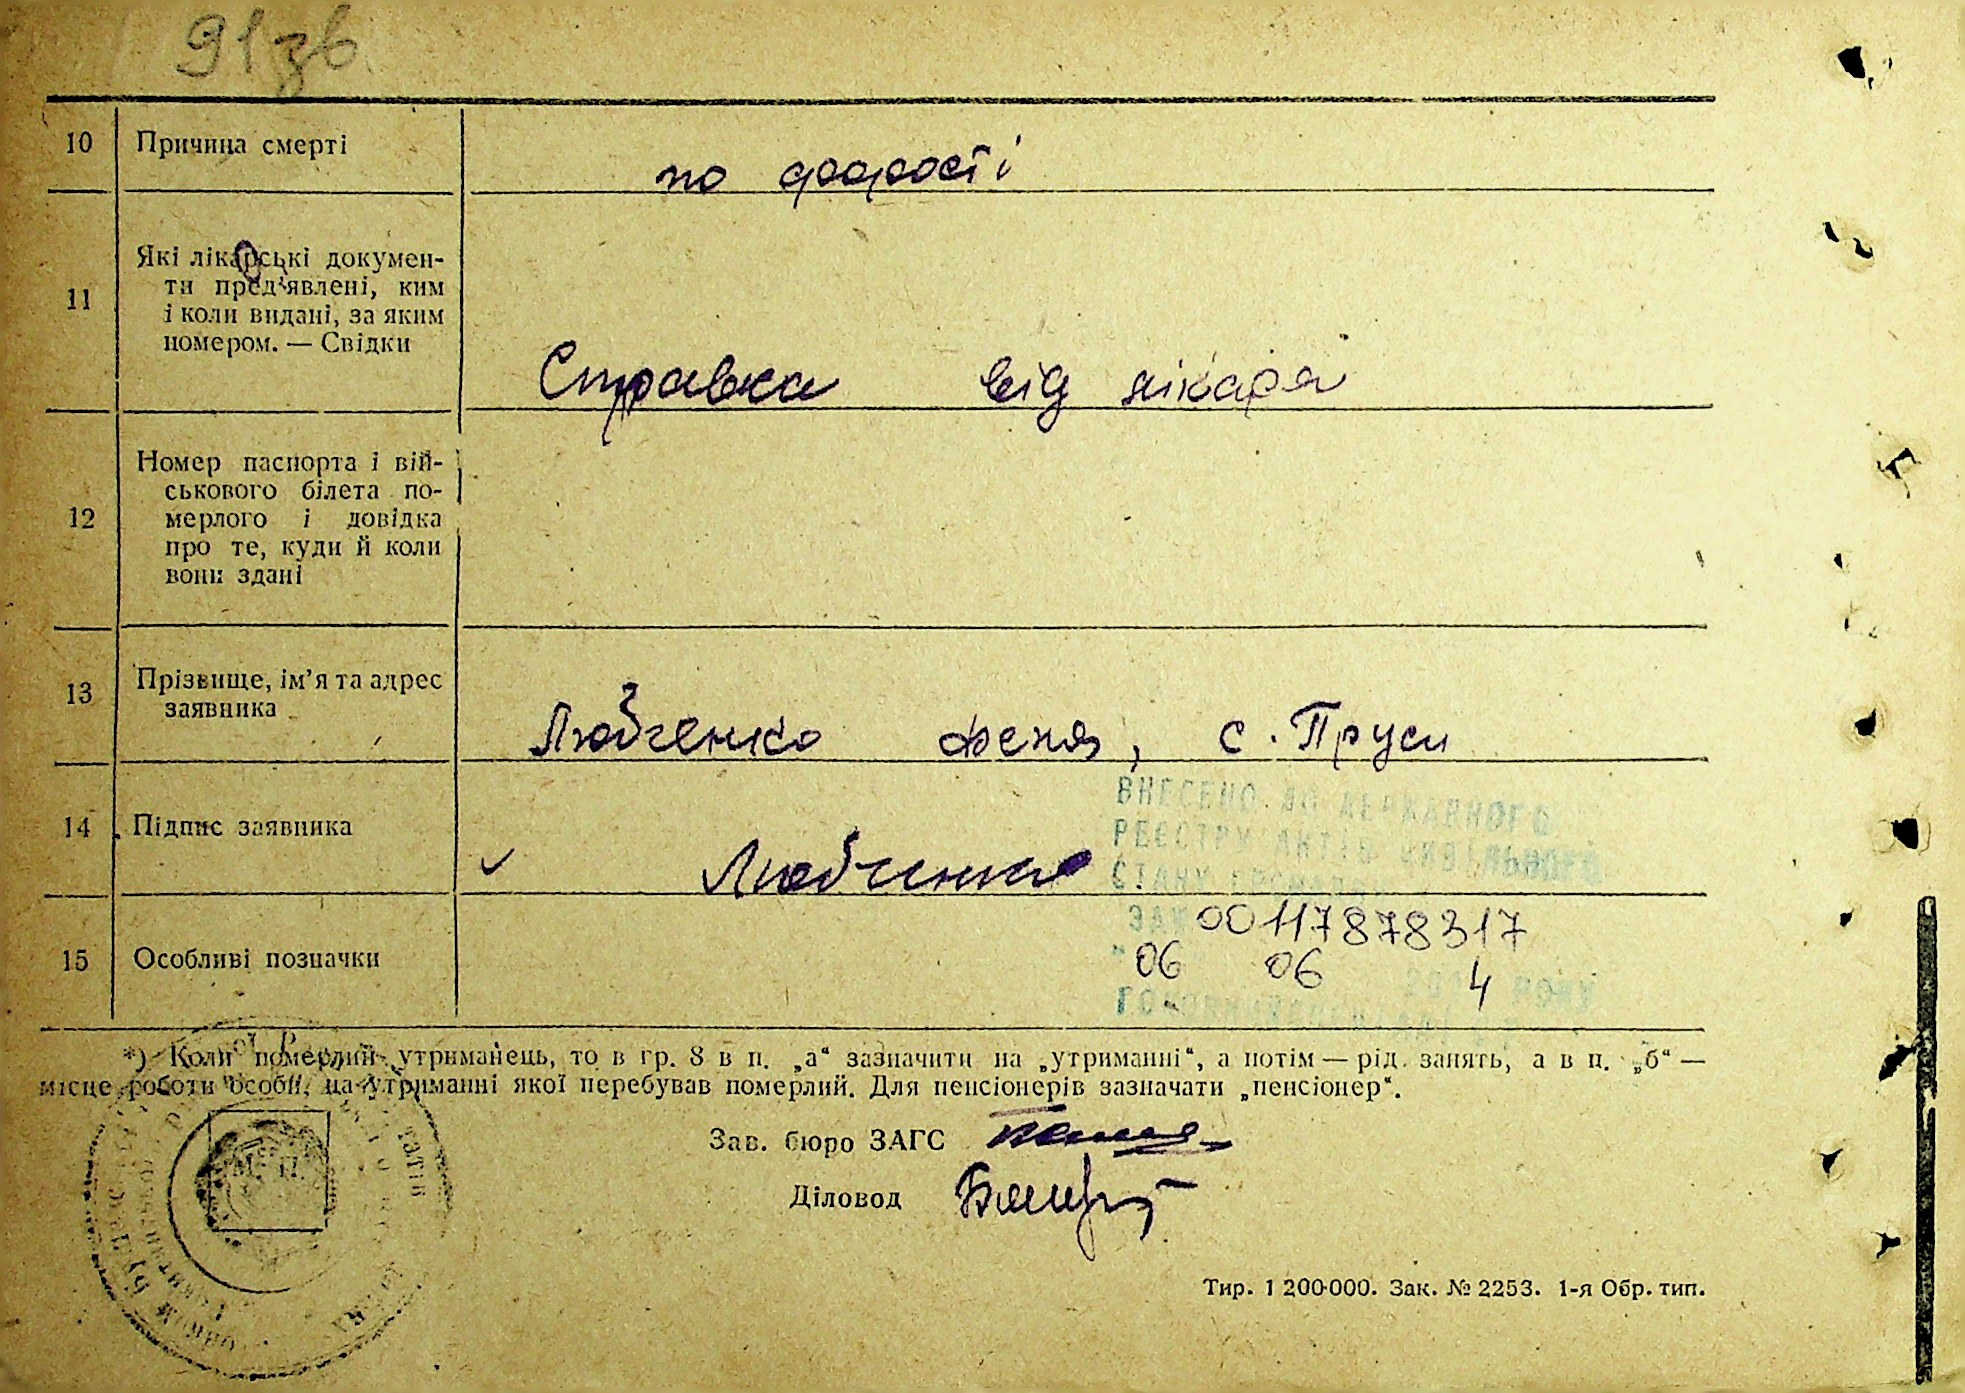 91 зв.
10 Причина смерті по старості
11 Які лікарські докумен-
ти пред'явлені, ким
і коли видані, за яким
номером. — Свідки
Справка від лікаря
12 Номер паспорта і вій-
ськового білета по-
мерлого і довідка
про те, куди й коли
вони здані
13 Прізвище, ім'я та адрес
заявника
Любченко Женя, с. Пруси
ВНЕСЕНО ДО ДЕРЖАВНОГО
РЕЄСТРУ АКТІВ ЦИВІЛЬНОГО
СТАНУ ГРОМАДЯН
14 Підпис заявника Любченко
ЗА № 00117878317
15 Особливі позначки
" 06 06 20 4 РОКУ
*) Коли померлий утриманець, то в гр. 8 в п. „а“ зазначити на „утриманні“, а потім — рід занять, а в п. „б“ —
місце роботи особи, на утриманні якої перебував померлий. Для пенсіонерів зазначати „пенсіонер“.
Зав. бюро ЗАГС
М. П.
Діловод
Тир. 1 200·000. Зак. № 2253. 1-я Обр. тип.